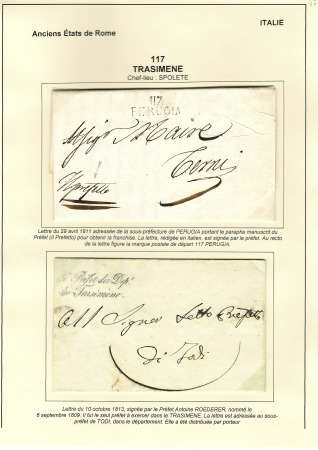 ITALIE
Anciens États de Rome
117
TRASIMENE
Chef-lieu : SPOLETE
117
PERUGIA
Maire
Terni
Il prefetto
Lettre du 29 avril 1811 adressée de la sous-préfecture de PERUGIA portant le paraphe manuscrit du
Préfet (Il Prefetto) pour obtenir la franchise. La lettre, rédigée en italien, est signée par le préfet. Au recto
de la lettre figure la marque postale de départ 117 PERUGIA.
Préfet du Dépt
du Trasimène.
All Signor Sotto Prefetto
di Todi
Lettre du 10 octobre 1813, signée par le Préfet Antoine ROEDERER, nommé le
6 septembre 1809. Il fut le seul préfet à exercer dans le TRASIMENE. La lettre est adressée au sous-
préfet de TODI, dans le département. Elle a été distribuée par porteur